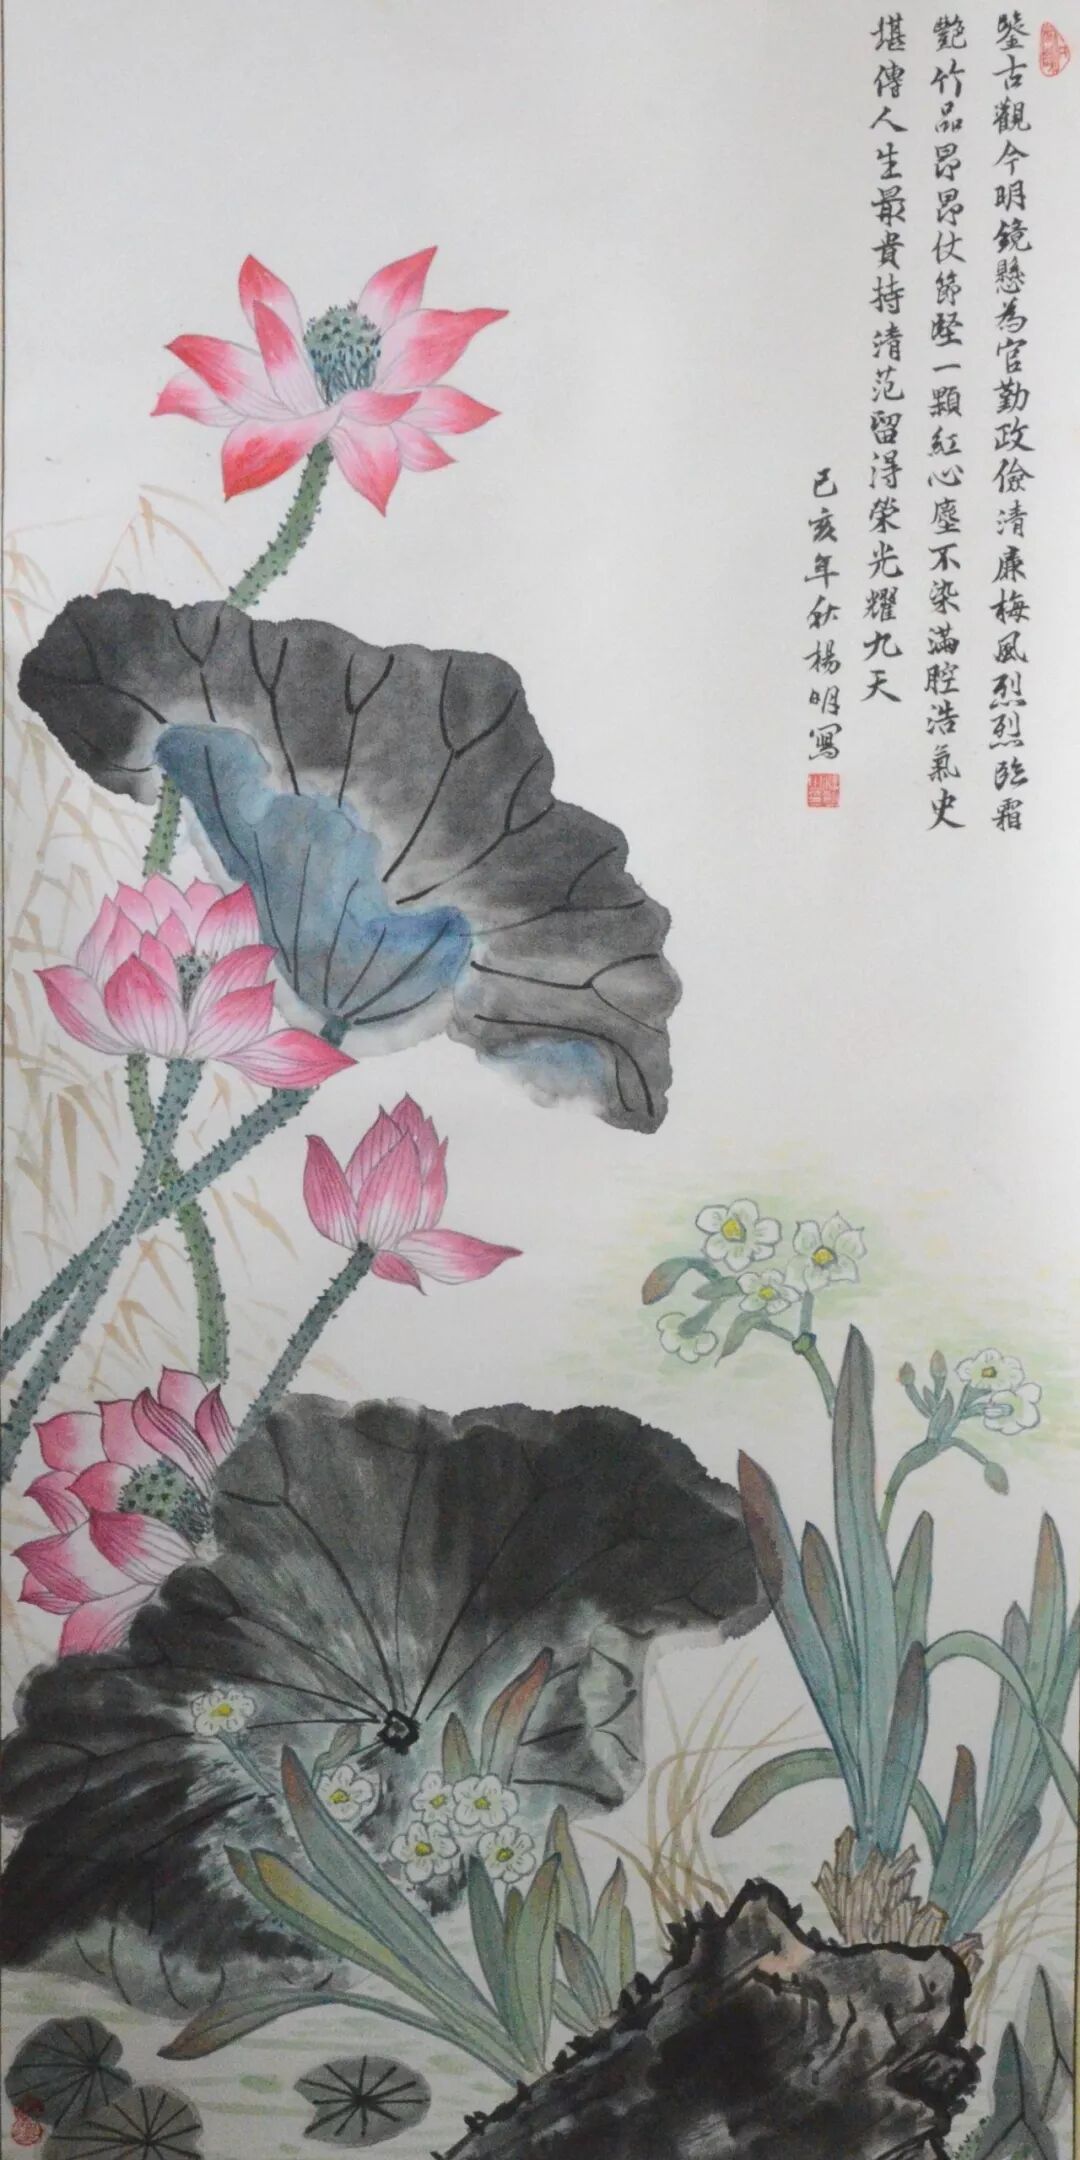 鑒古觀今明鏡懸為官勤政儉清廉梅風烈烈臨霜
艷竹品昂昂仗節堅一顆紅心塵不染滿腔浩氣史
堪傳人生最貴持清范留得榮光耀九天
己亥年秋楊明寫